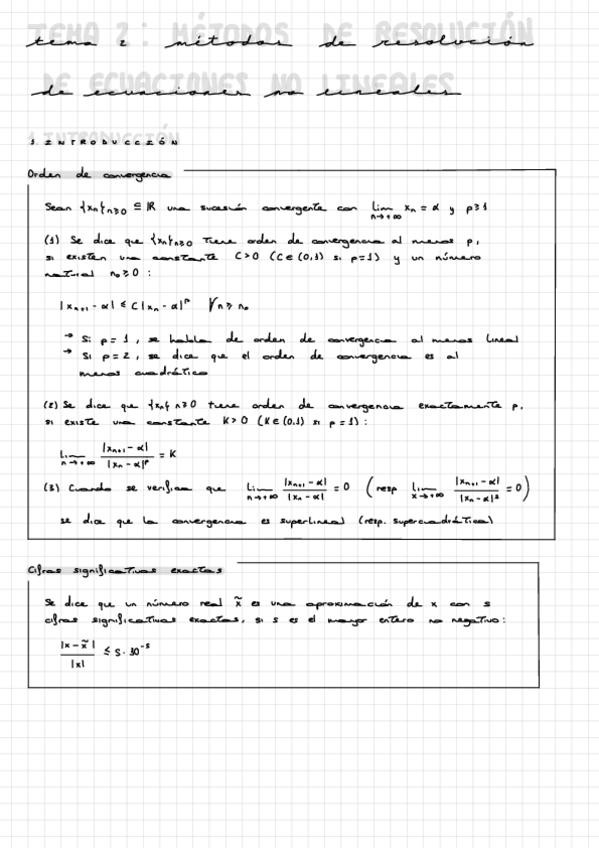 TEMA 2: MÉTODOS DE RESOLUCIÓN
tema 2 métodos de resolución
DE ECUACIONES NO LINEALES
de ecuaciones no lineales
1. INTRODUCCIÓN
Orden de convergencia
Sean {xn}n≥0 ⊆ ℝ una sucesión convergente con lim n→+∞ xn = α y p≥1
(1) Se dice que {xn}n≥0 tiene orden de convergencia al menos p,
si existen una constante C>0 (C∈(0,1) si p=1) y un número
natural n₀≥0 :
|xn+1 - α| ≤ C|xn - α|^p ∀n≥n₀
→ Si p=1, se habla de orden de convergencia al menos lineal
→ Si p=2, se dice que el orden de convergencia es al
menos cuadrático
(2) Se dice que {xn} n≥0 tiene orden de convergencia exactamente p,
si existe una constante K>0 (K∈(0,1) si p=1):
lim n→+∞ |xn+1 - α| / |xn - α|^p = K
(3) Cuando se verifica que lim n→+∞ |xn+1 - α| / |xn - α| = 0 (resp lim x→+∞ |xn+1 - α| / |xn - α|² = 0)
se dice que la convergencia es superlineal (resp. supercuadrática)
Cifras significativas exactas
Se dice que un número real x̃ es una aproximación de x con s
cifras significativas exactas, si s es el mayor entero no negativo:
|x - x̃| / |x| ≤ 5·10^-s